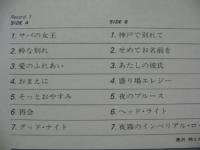 Record 1
SIDE A
1. サバの女王
2. 粋な別れ
3. 愛のふれあい
4. おまえに
5. そっとおやすみ
6. 再会
7. グッド・ナイト
SIDE B
1. 神戸で別れて
2. せめてお名前を
3. あたしの彼氏
4. 盛り場エレジー
5. 夜のブルース
6. ヘッド・ライト
7. 夜霧のインペリアル・ロー